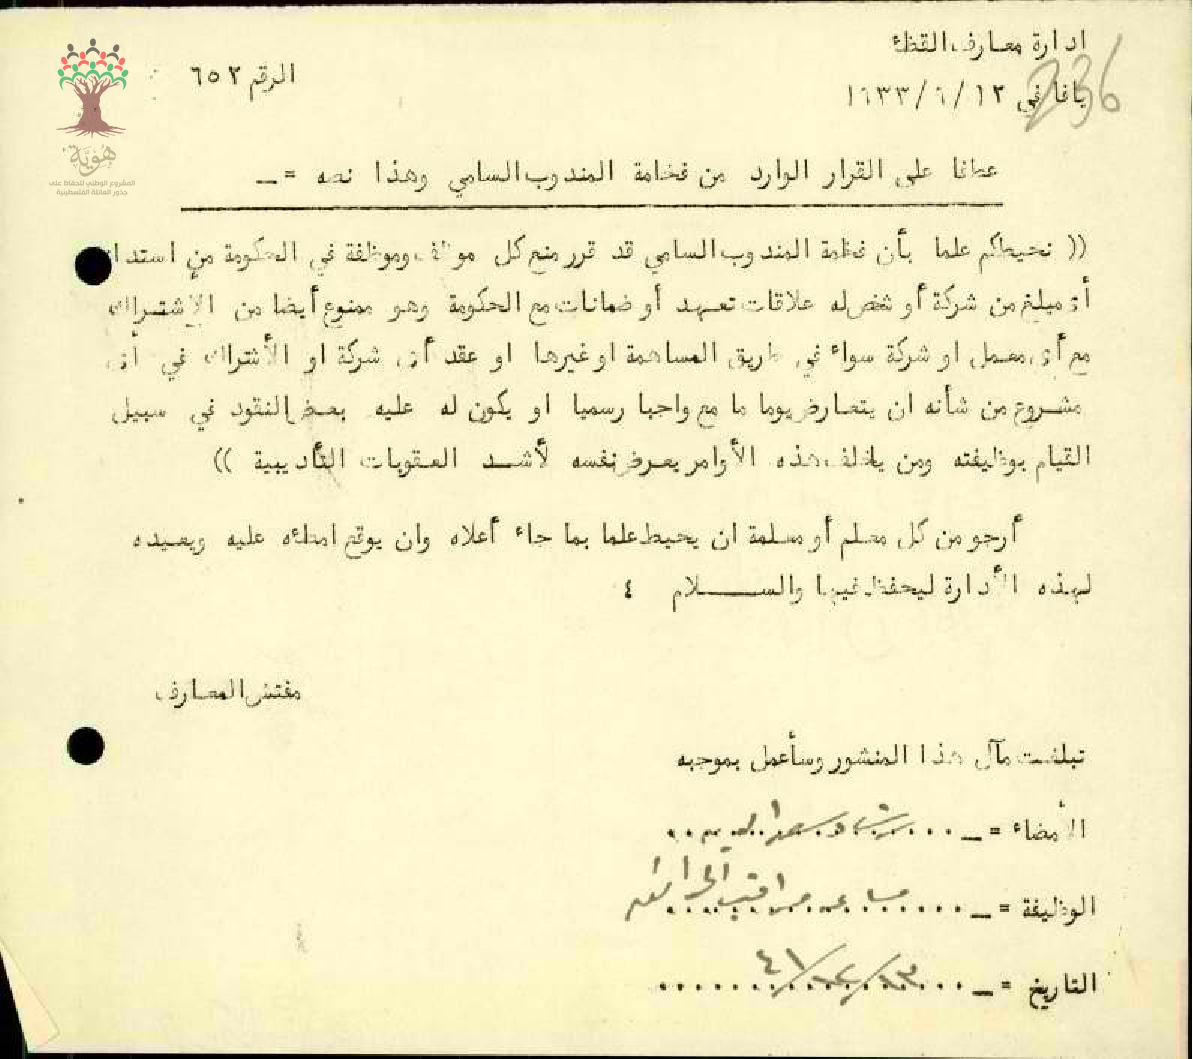 ادارة معارف القظاء
236
يافا في ١٢ / ٦ / ١٩٣٣
الرقم ٦٥٢
هُوِيَّة
المشروع الوطني للحفاظ على
جذور العائلة الفلسطينية
عطفا على القرار الوارد من فخامة المندوب السامي وهذا نصه =ـ
(( نحيطكم علما بأن فخامة المندوب السامي قد قرر منع كل موظف وموظفة في الحكومة من استدانة
أي مبلغ من شركة أو شخص له علاقات تعهد أو ضمانات مع الحكومة وهو ممنوع أيضا من الاشتراك
مع أي معمل او شركة سواء في طريق المساهمة او غيرها او عقد أي شركة او الأشتراك في أي
مشروع من شأنه ان يتعارض يوما ما مع واجبا رسميا او يكون له عليه بعض النقود في سبيل
القيام بوظيفته ومن يخالف هذه الأوامر يعرض نفسه لأشد العقوبات التأديبية ))
أرجو من كل معلم أو معلمة ان يحيط علما بما جاء أعلاه وان يوقع امظاءه عليه ويعيده
لهذه الأدارة ليحفظ فيها والســـــلام ٤
مفتش المعارف
تبلغت مآل هذا المنشور وسأعمل بموجبه
الأمضاء =ـ رشاد سعد الدين
الوظيفة =ـ مساعد مراقب
التاريخ =ـ ١٣/١٢/٤١